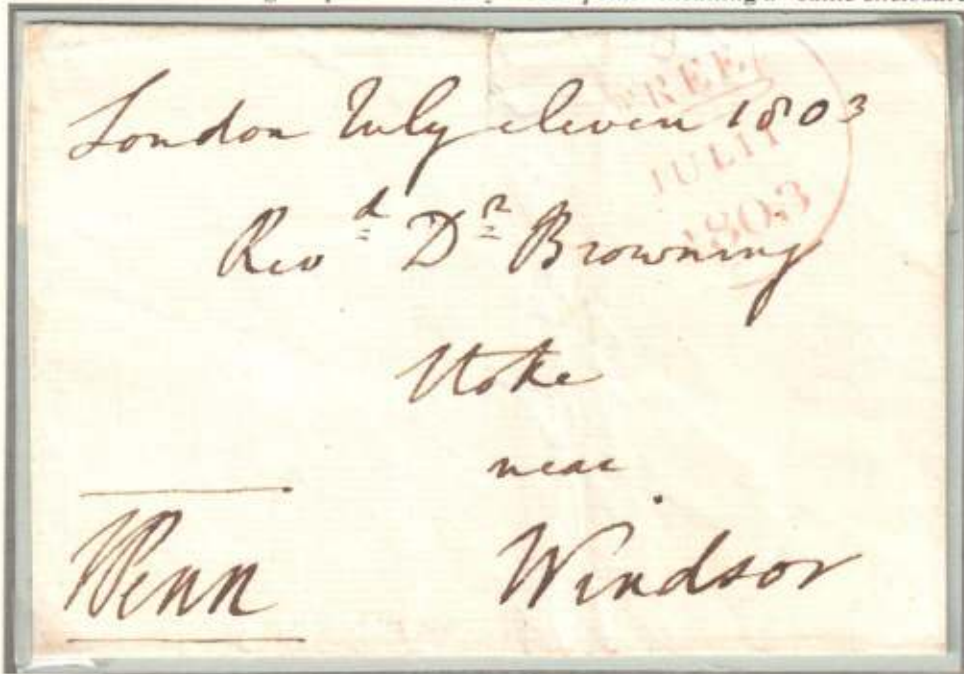 London July eleven 1803
FREE
JUL 11
1803
Revd Dr Browning
Stoke
near
Windsor